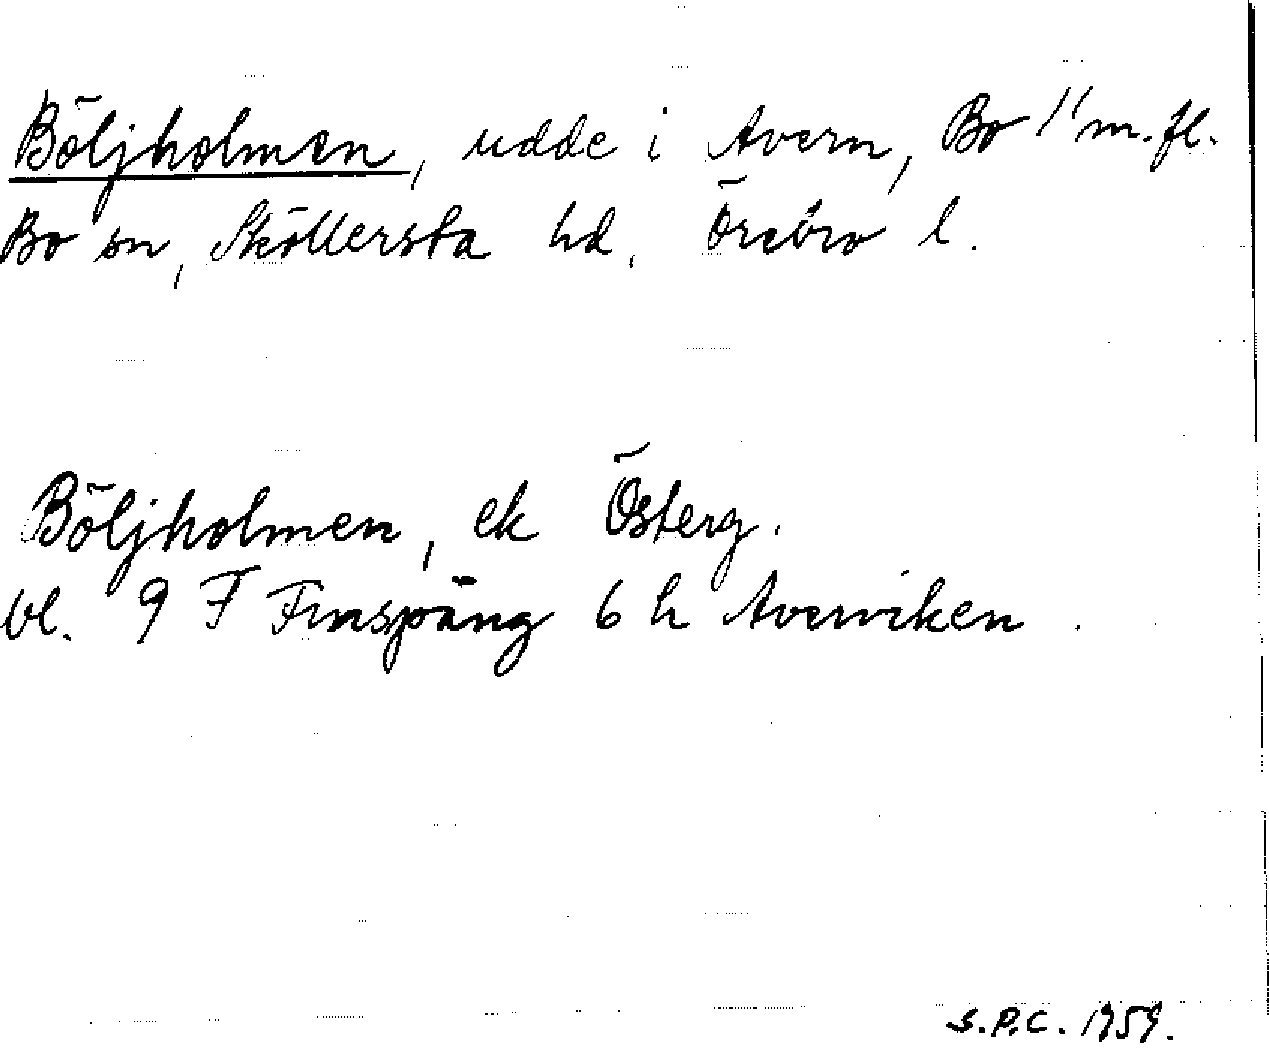 Böljholmen, udde i Avern, Bo 1/1 m.fl.
Bo sn, Sköllersta hd, Örebro l.
Böljholmen, ek Österg.
bl. 9 F Finspång 6 h Averviken.
S.P.C. 1959.